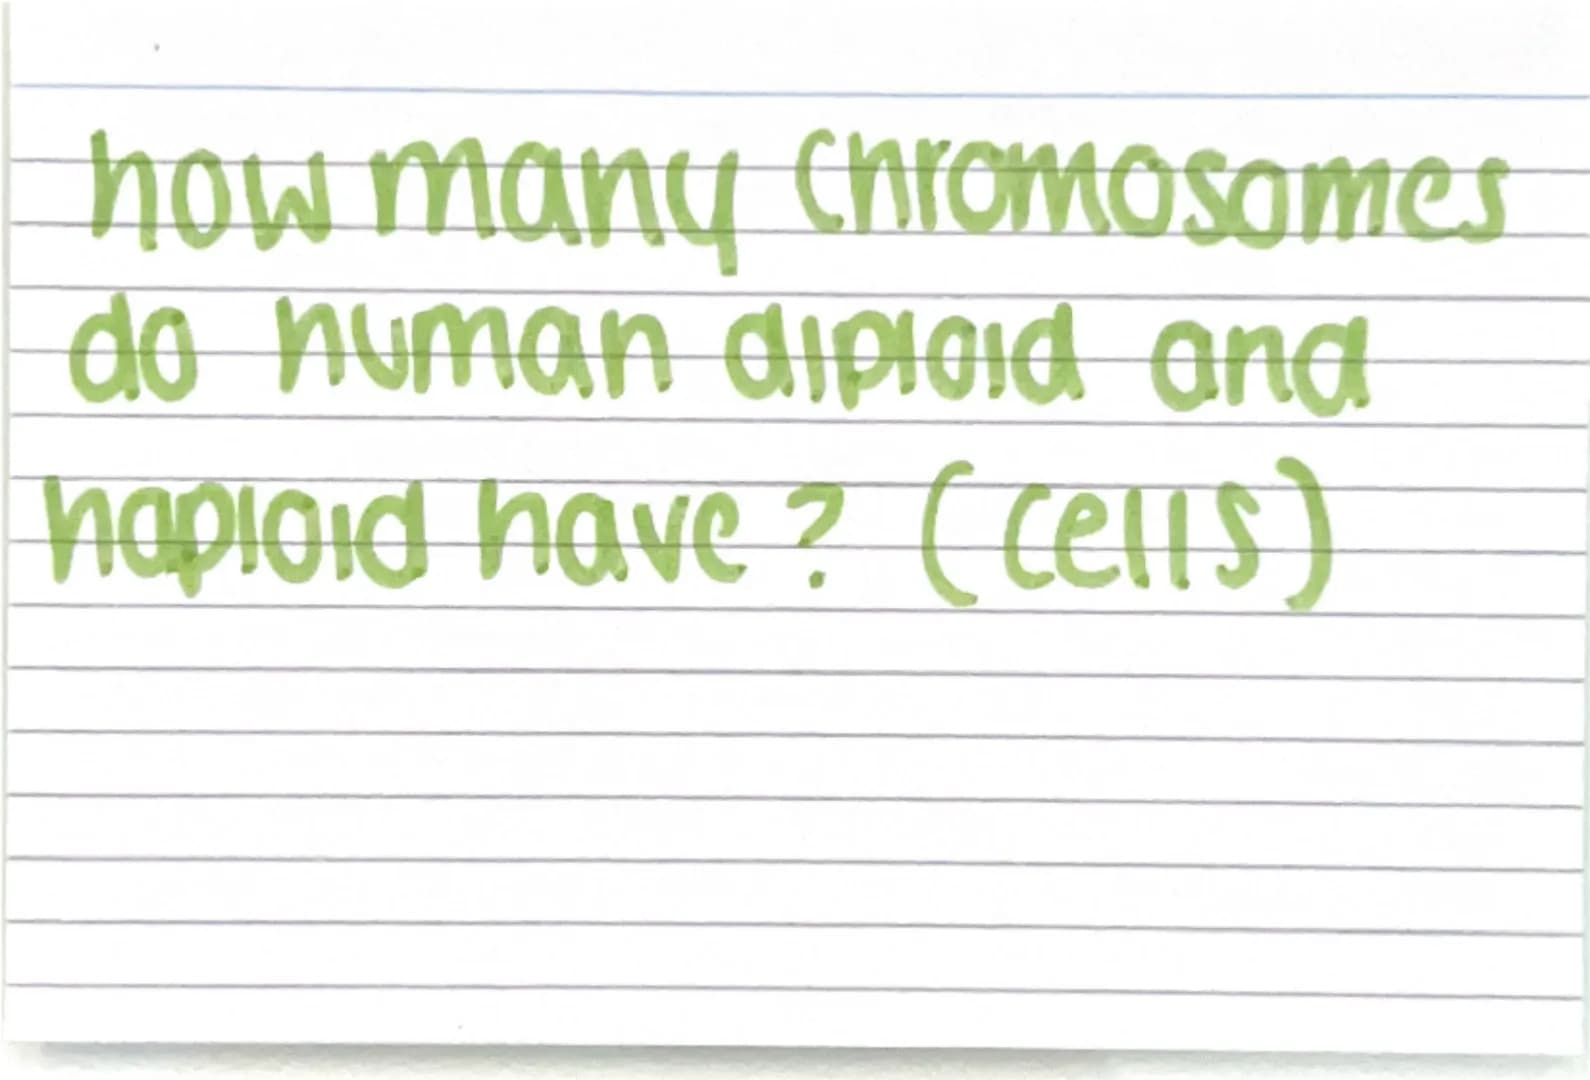 how many chromosomes
do human diploid and
haploid have? (cells)